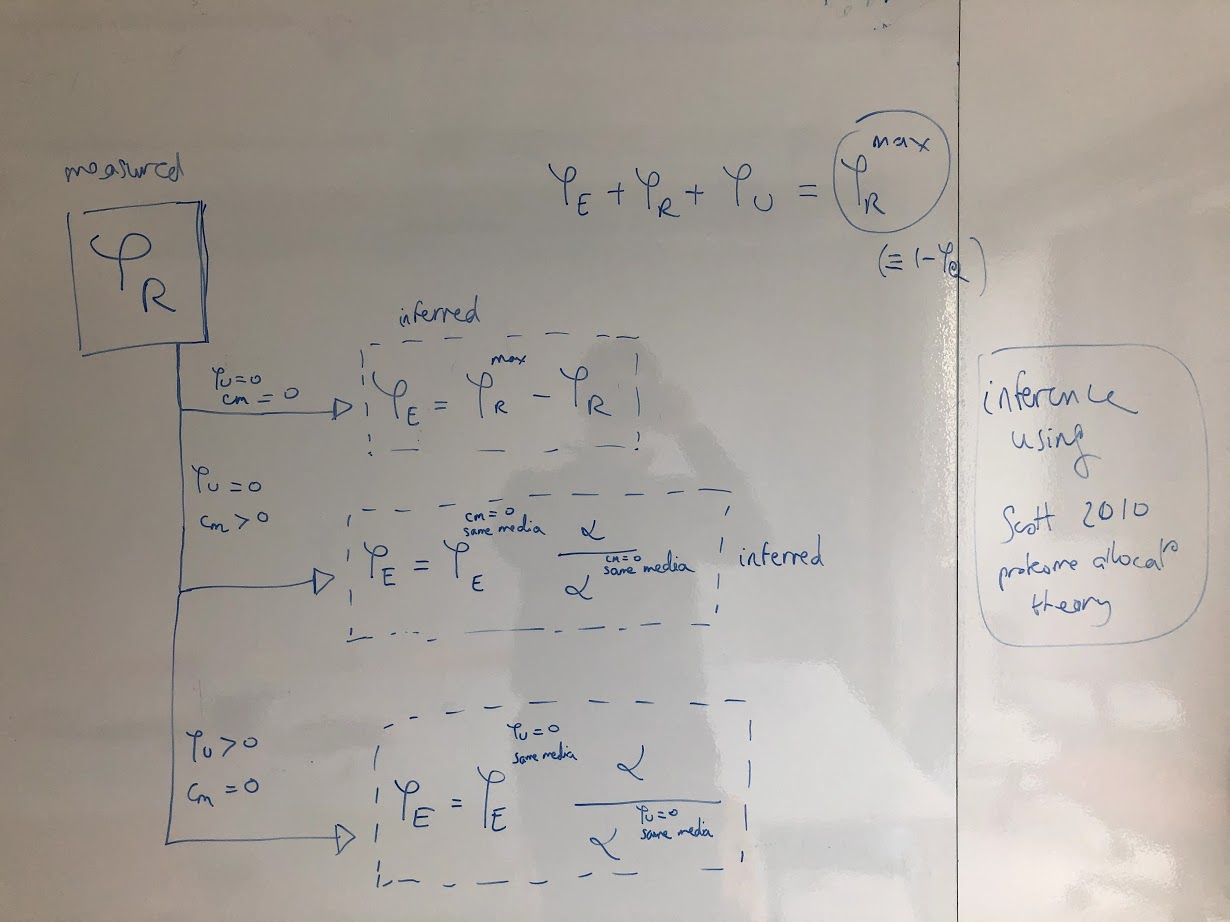 measured
φ_R
φ_E + φ_R + φ_U = φ_R^max
(≡ 1-φ_Q)
inferred
φ_U=0
cm = 0
φ_E = φ_R^max - φ_R
φ_U = 0
cm > 0
φ_E = φ_E^{cm=0 same media} α / α^{cm=0 same media}
inferred
φ_U > 0
cm = 0
φ_E = φ_E^{φ_U=0 same media} α / α^{φ_U=0 same media}
inference
using
Scott 2010
proteome allocat°
theory